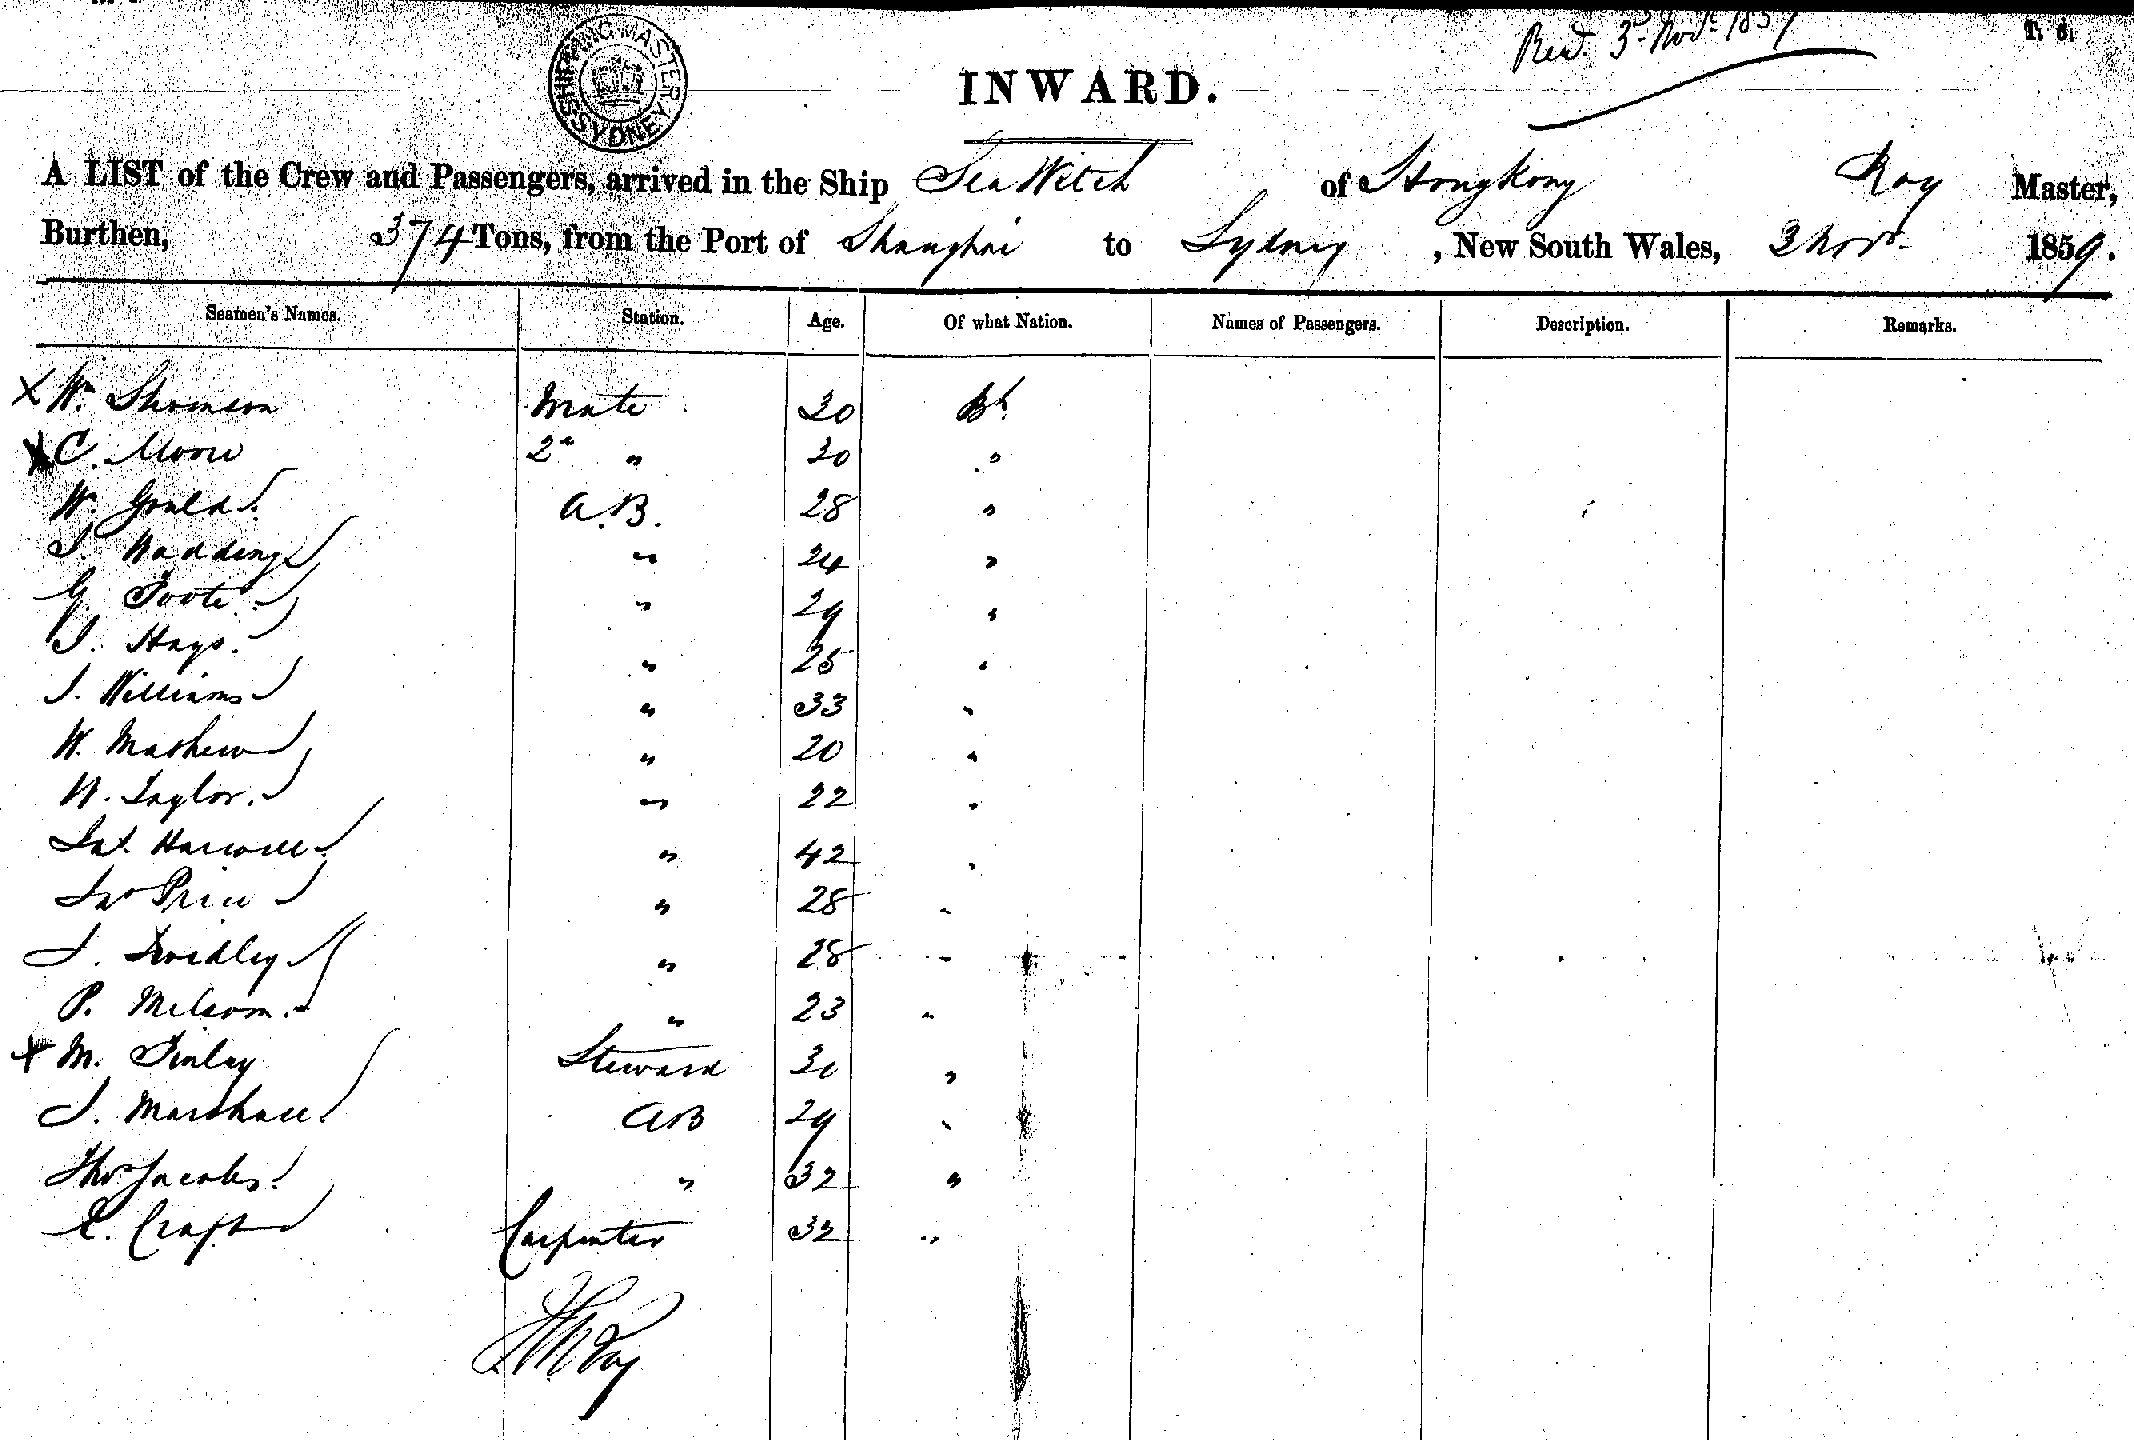 SHIPPING MASTER SYDNEY
Recd. 3rd Novr. 1859
T. 6.
INWARD.
A LIST of the Crew and Passengers, arrived in the Ship Sea Witch of Hongkong Roy Master,
Burthen, 374 Tons, from the Port of Shanghai to Sydney, New South Wales, 3 Novr. 1859.
Seamen's Names. Station. Age. Of what Nation. Names of Passengers. Description. Remarks.
X Wm Thomson Mate 30 Bh.
X C. Moore 2d " 30 "
Wm Gould A.B. 28 "
J. Wadding " 24 "
G. Foote " 29 "
J. Hays. " 25 "
J. Williams " 33 "
W. Mathew " 20 "
W. Taylor. " 22 "
Jas. " 42 "
Jno Price " 28 "
J. " 28 "
P. Melsom. " 23 "
X M. Finlay Steward 30 "
J. Marshall. AB 29 "
Thos Jacobs. " 32 "
E. Craft Carpenter 32 "